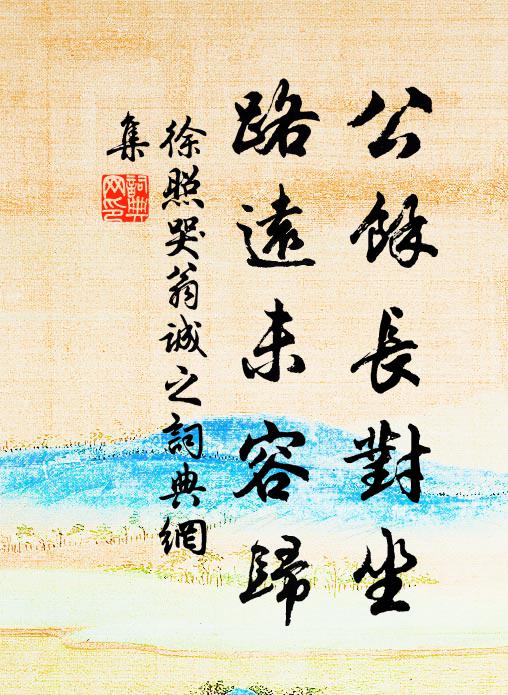 公餘長對坐
路遠未容歸
徐照哭翁誠之詞典網
集
詞典網印